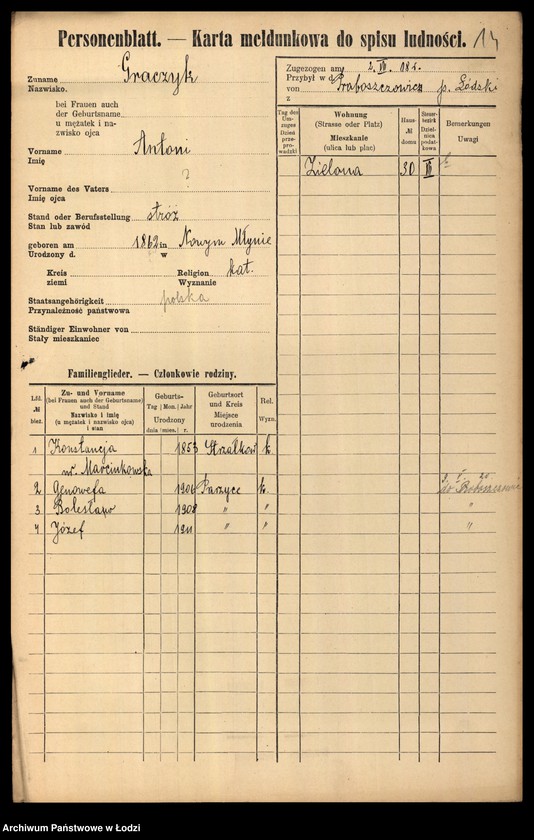 Personenblatt. — Karta meldunkowa do spisu ludności. 14
Zuname Graczyk
Nazwisko.
bei Frauen auch
der Geburtsname
u mężatek i na-
zwisko ojca
Vorname Antoni
Imię
Vorname des Vaters ?
Imię ojca
Stand oder Berufsstellung stróż
Stan lub zawód
geboren am 1862 in Nowym Młynie
Urodzony d. w
Kreis Religion kat.
ziemi Wyznanie
Staatsangehörigkeit polska
Przynależność państwowa
Ständiger Einwohner von
Stały mieszkaniec
Zugezogen am 2. VII.
Przybył w d.
von p. Łódzki
z
Tag des Um-zuges Dzień prze-prowadzki
Wohnung (Strasse oder Platz) Mieszkanie (ulica lub plac)
Haus- № domu
Steuer-bezirk Dziel-nica podat-kowa
Bemerkungen Uwagi
Zielona 30 VII
Familienglieder. — Członkowie rodziny.
Lfd. № bież.
Zu- und Vorname (bei Frauen auch der Geburtsname) und Stand Nazwisko i imię (u mężatek i nazwisko ojca) i stan
Geburts- Tag Mon. Jahr Urodzony dnia mies. r.
Geburtsort und Kreis Miejsce urodzenia
Rel. Wyzn.
1 Konstancja 1853 Strzałków k.
Marcinkowska
2 Genowefa 1906 Parzyce k.
3 Bolesław 1908 " " "
4 Józef 1911 " " "
Archiwum Państwowe w Łodzi